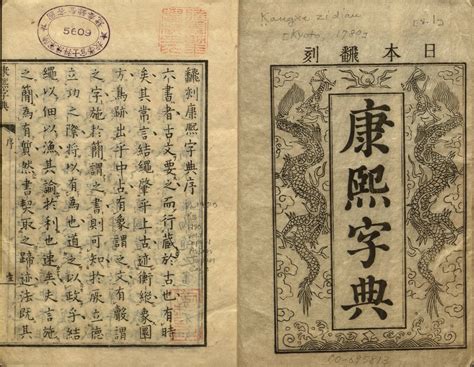 Kangxi zidian
(Kyoto, 1780)
日本翻刻
康熙字典
翻刻康熙字典序
六書者古文要之而行藏於古也有時
矣其常言結繩肇乎上古迹衡縱象圖
方鳥跡出乎中古有像謂之文有謂
之字施於簡謂之書則可知於厥立德
立功之際將以有為也道之以政乎結
繩以佃以漁其諭於利也速矣史言施
之簡為有然書契取之迹法既其
康熙字典 序
5609